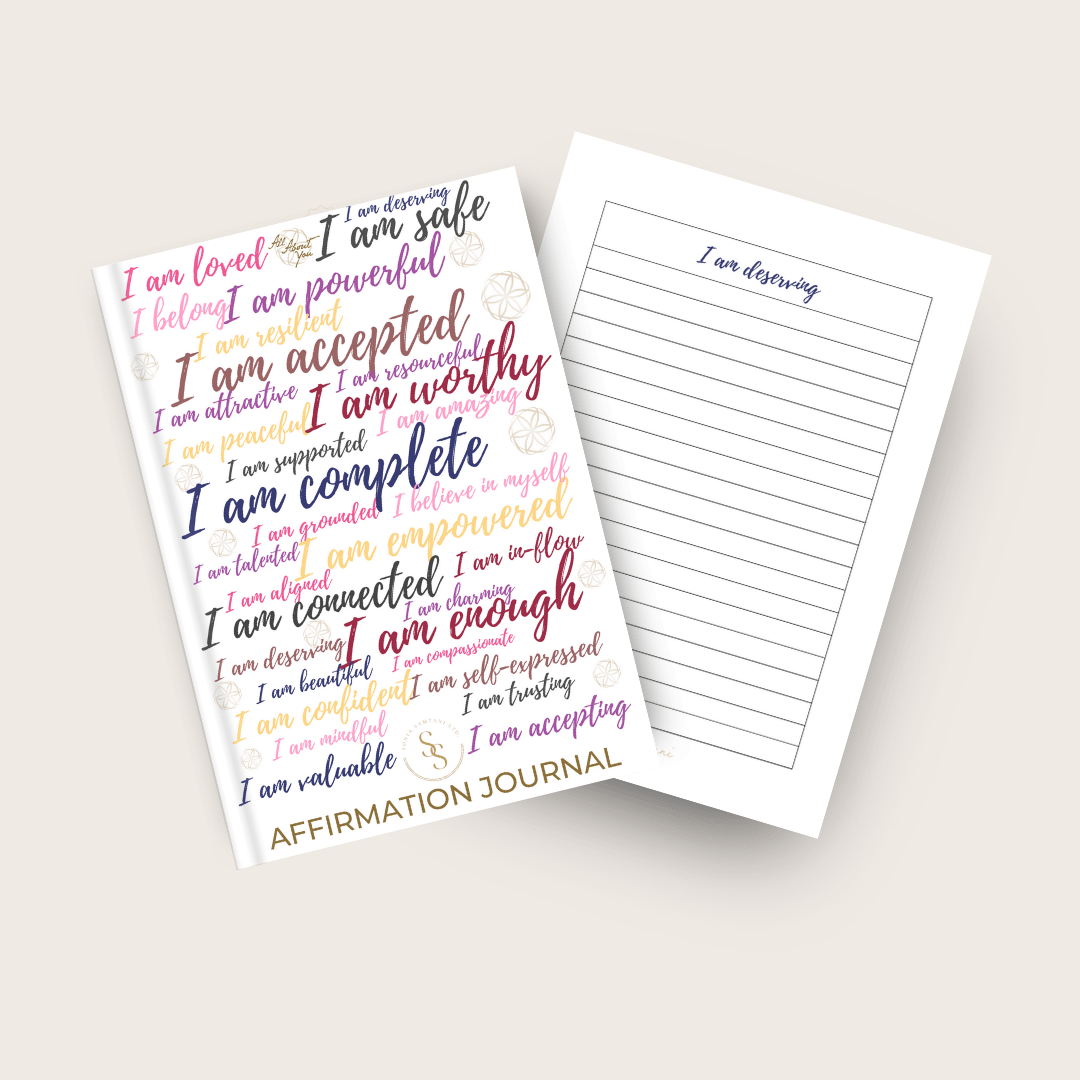 I am deserving
I am safe
I am loved
All About
You
I am powerful
I belong
I am resilient
I am accepted
I am resourceful
I am attractive
I am worthy
I am amazing
I am peaceful
I am supported
I am complete
I believe in myself
I am grounded
I am empowered
I am talented
I am in-flow
I am aligned
I am connected
I am charming
I am enough
I am deserving
I am compassionate
I am beautiful
I am self-expressed
I am confident
I am trusting
I am mindful
I am accepting
I am valuable
SS
AFFIRMATION JOURNAL
I am deserving